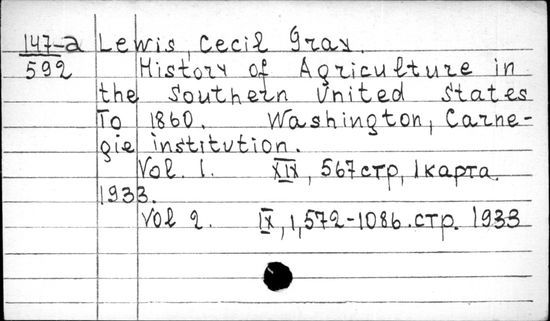 147-a Lewis, Cecil Gray.
592 History of Agriculture in
the Southern United States
To 1860. Washington, Carne-
gie institution.
Vol. 1. XIX, 567 стр, 1 карта.
1933.
Vol 2. IX, 1, 572-1086. стр. 1933